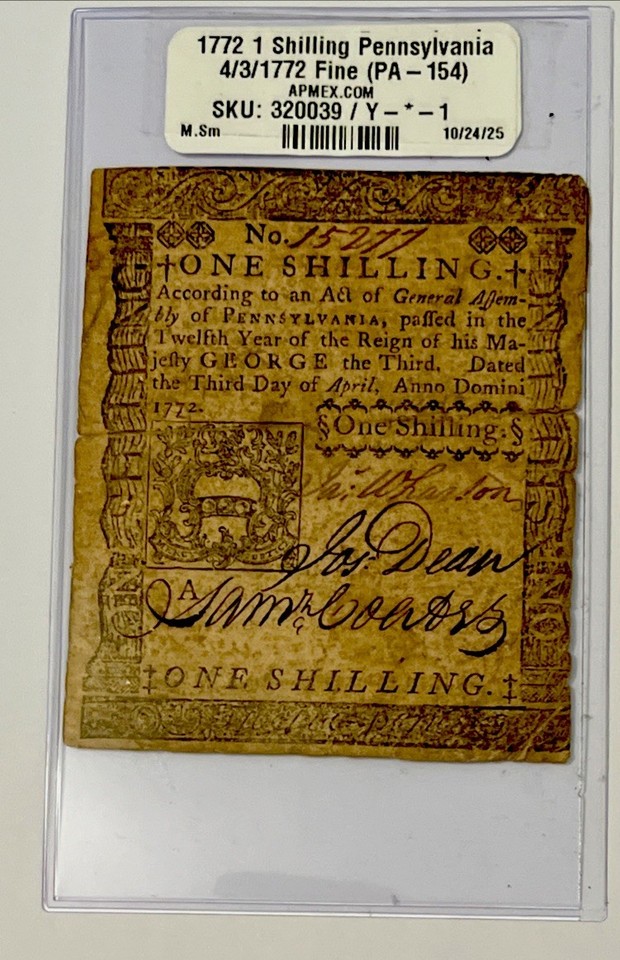 1772 1 Shilling Pennsylvania
4/3/1772 Fine (PA-154)
APMEX.COM
SKU: 320039 / Y-*-1
M.Sm 10/24/25
No. 15277
†ONE SHILLING.†
According to an Act of General Aſſem-
bly of PENNSYLVANIA, paſſed in the
Twelfth Year of the Reign of his Ma-
jeſty GEORGE the Third. Dated
the Third Day of April, Anno Domini
1772.
§One Shilling.§
Ja.s Wharton
Jos. Dean
A
Saml. Coates
‡ONE SHILLING.‡